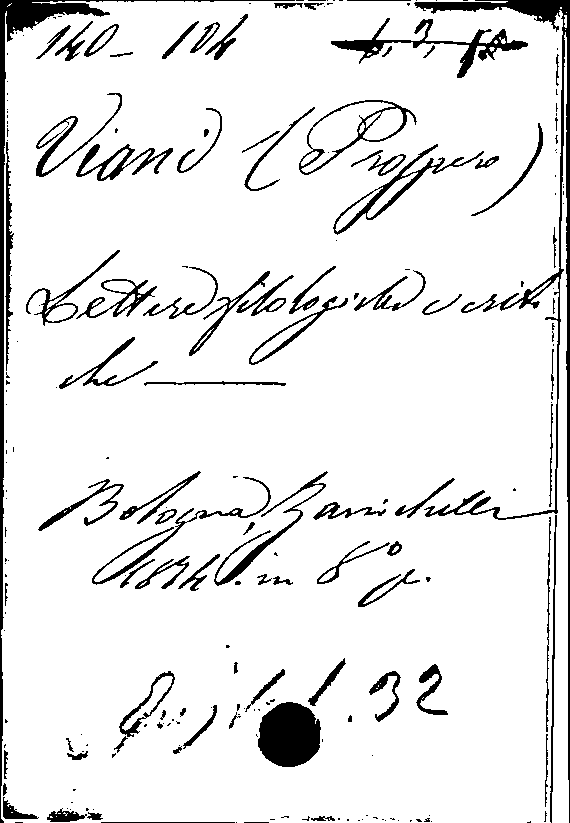 140_ 104
Viani (Prospero)
Lettere filologiche e criti-
che
Bologna, Zanichelli
1874. in 8° p.
32